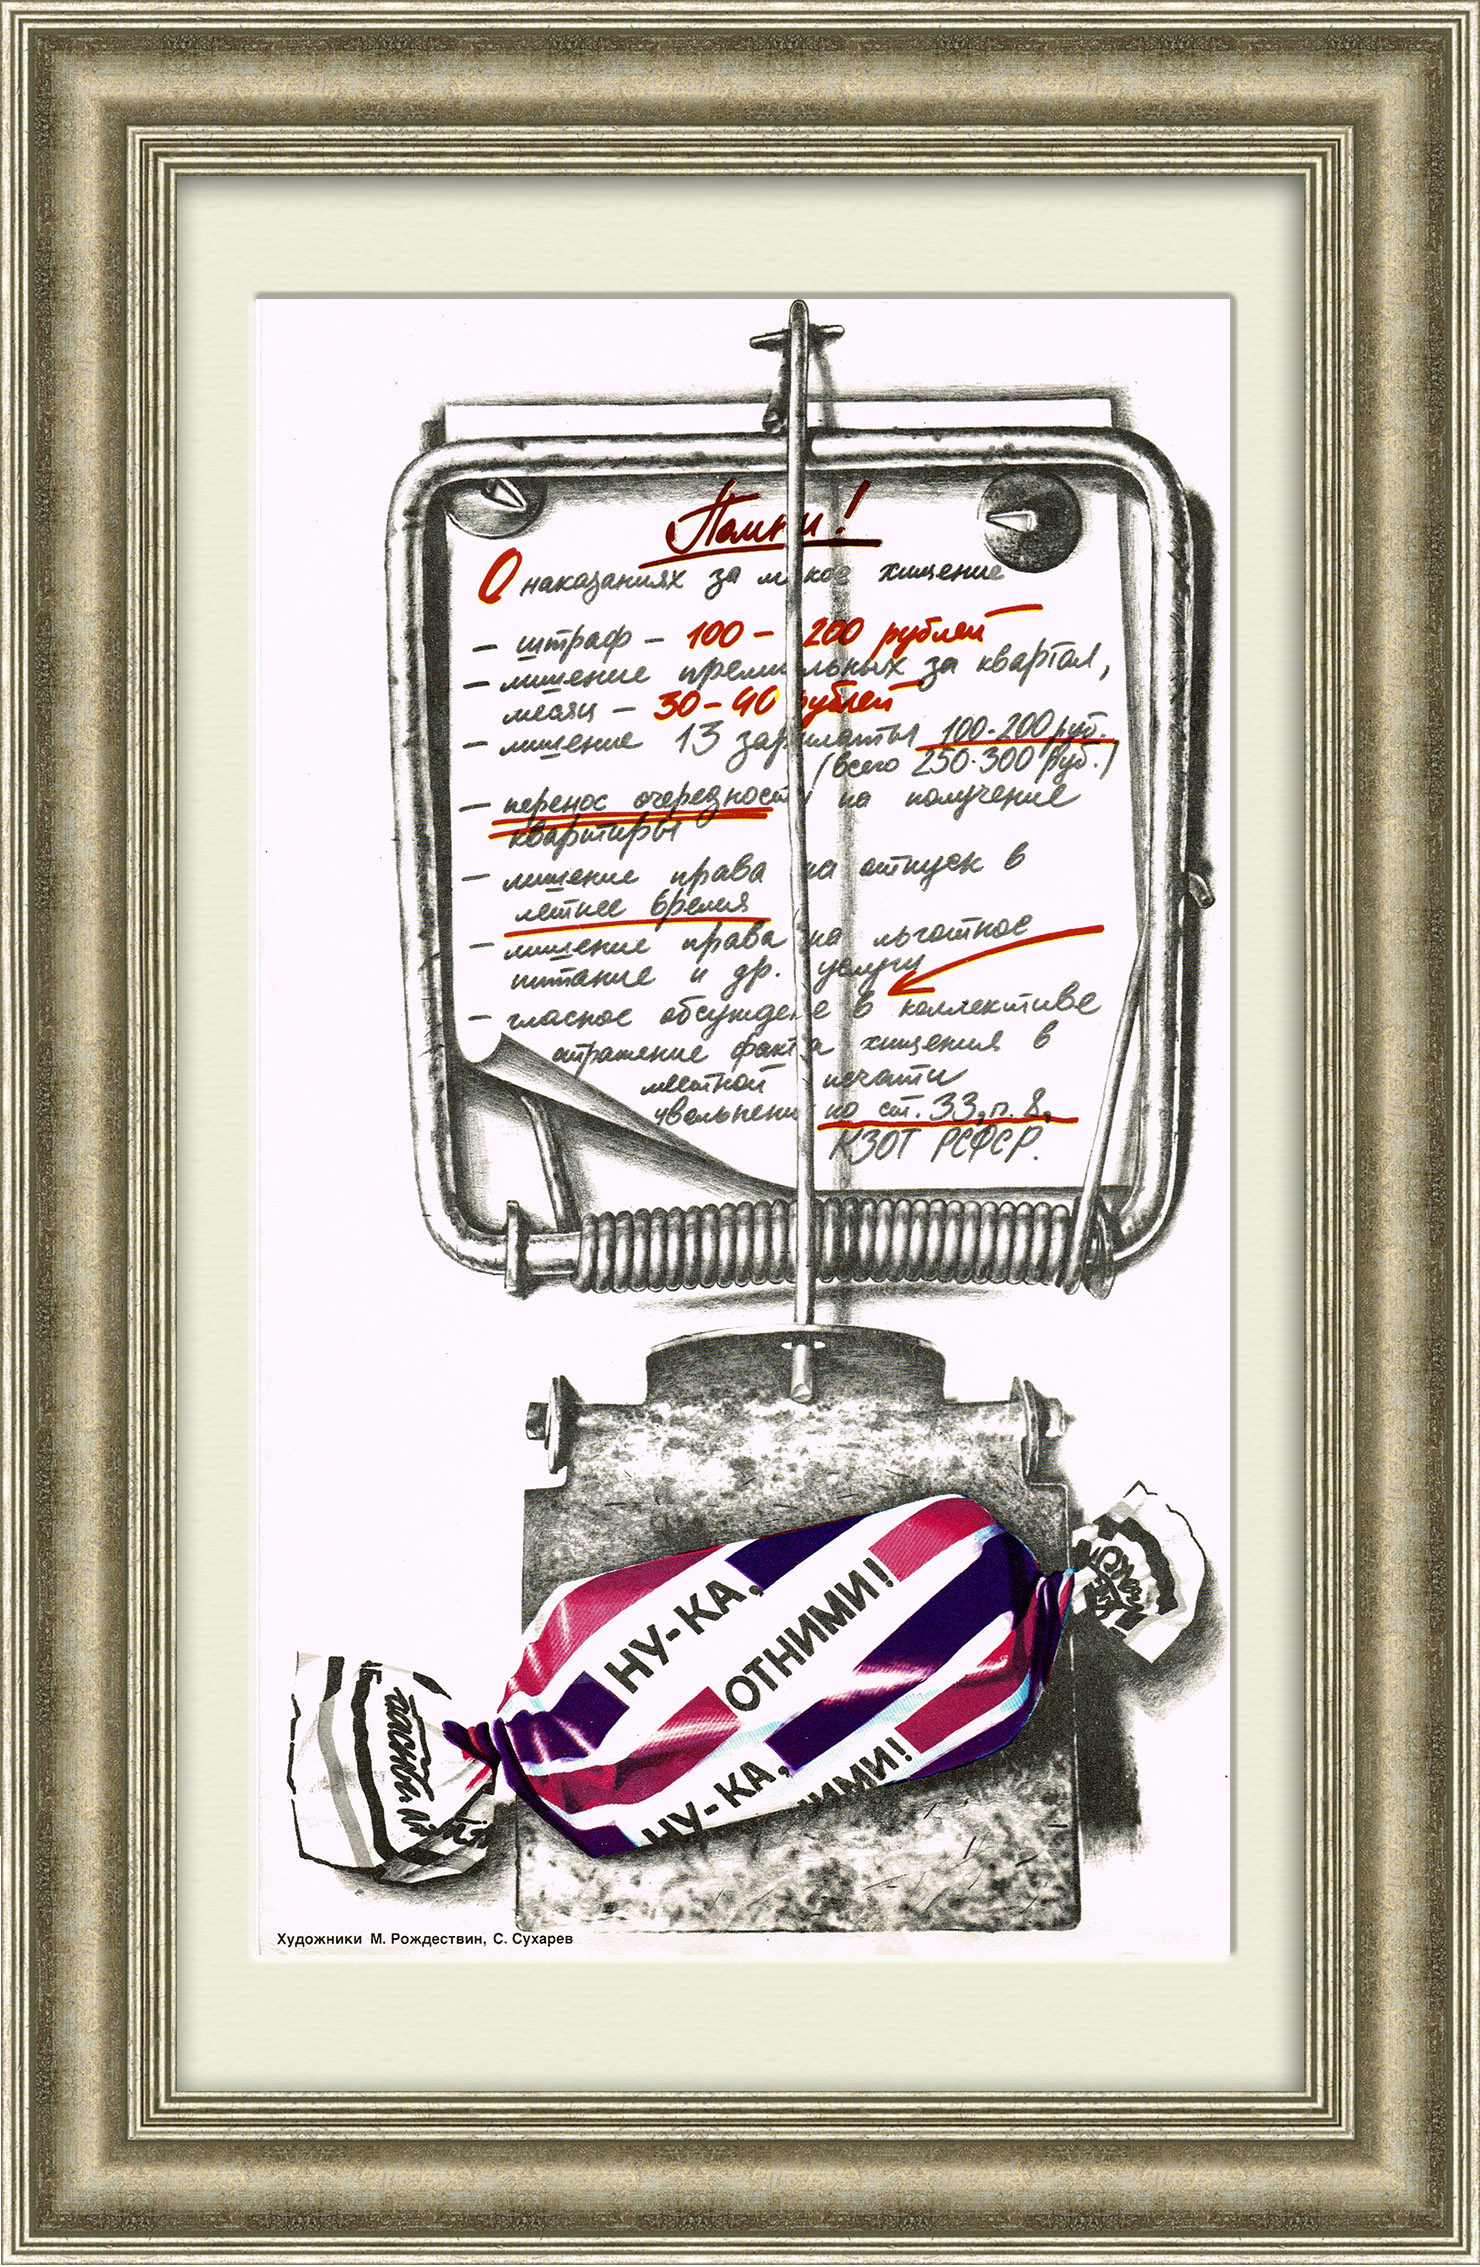 Помни!
О наказаниях за мелкое хищение
– штраф – 100 – 200 рублей
– лишение премиальных за квартал,
месяц – 30–40 рублей
– лишение 13 зарплаты 100-200 руб.
(всего 250-300 руб.)
– перенос очередности на получение
квартиры
– лишение права на отпуск в
летнее время
– лишение права на льготное
питание и др. услуги
– гласное обсуждение в коллективе
отражение факта хищения в
местной печати
увольнение по ст. 33, п. 8,
КЗОТ РСФСР.
НУ-КА,
ОТНИМИ!
НУ-КА,
НИМИ!
Художники М. Рождествин, С. Сухарев